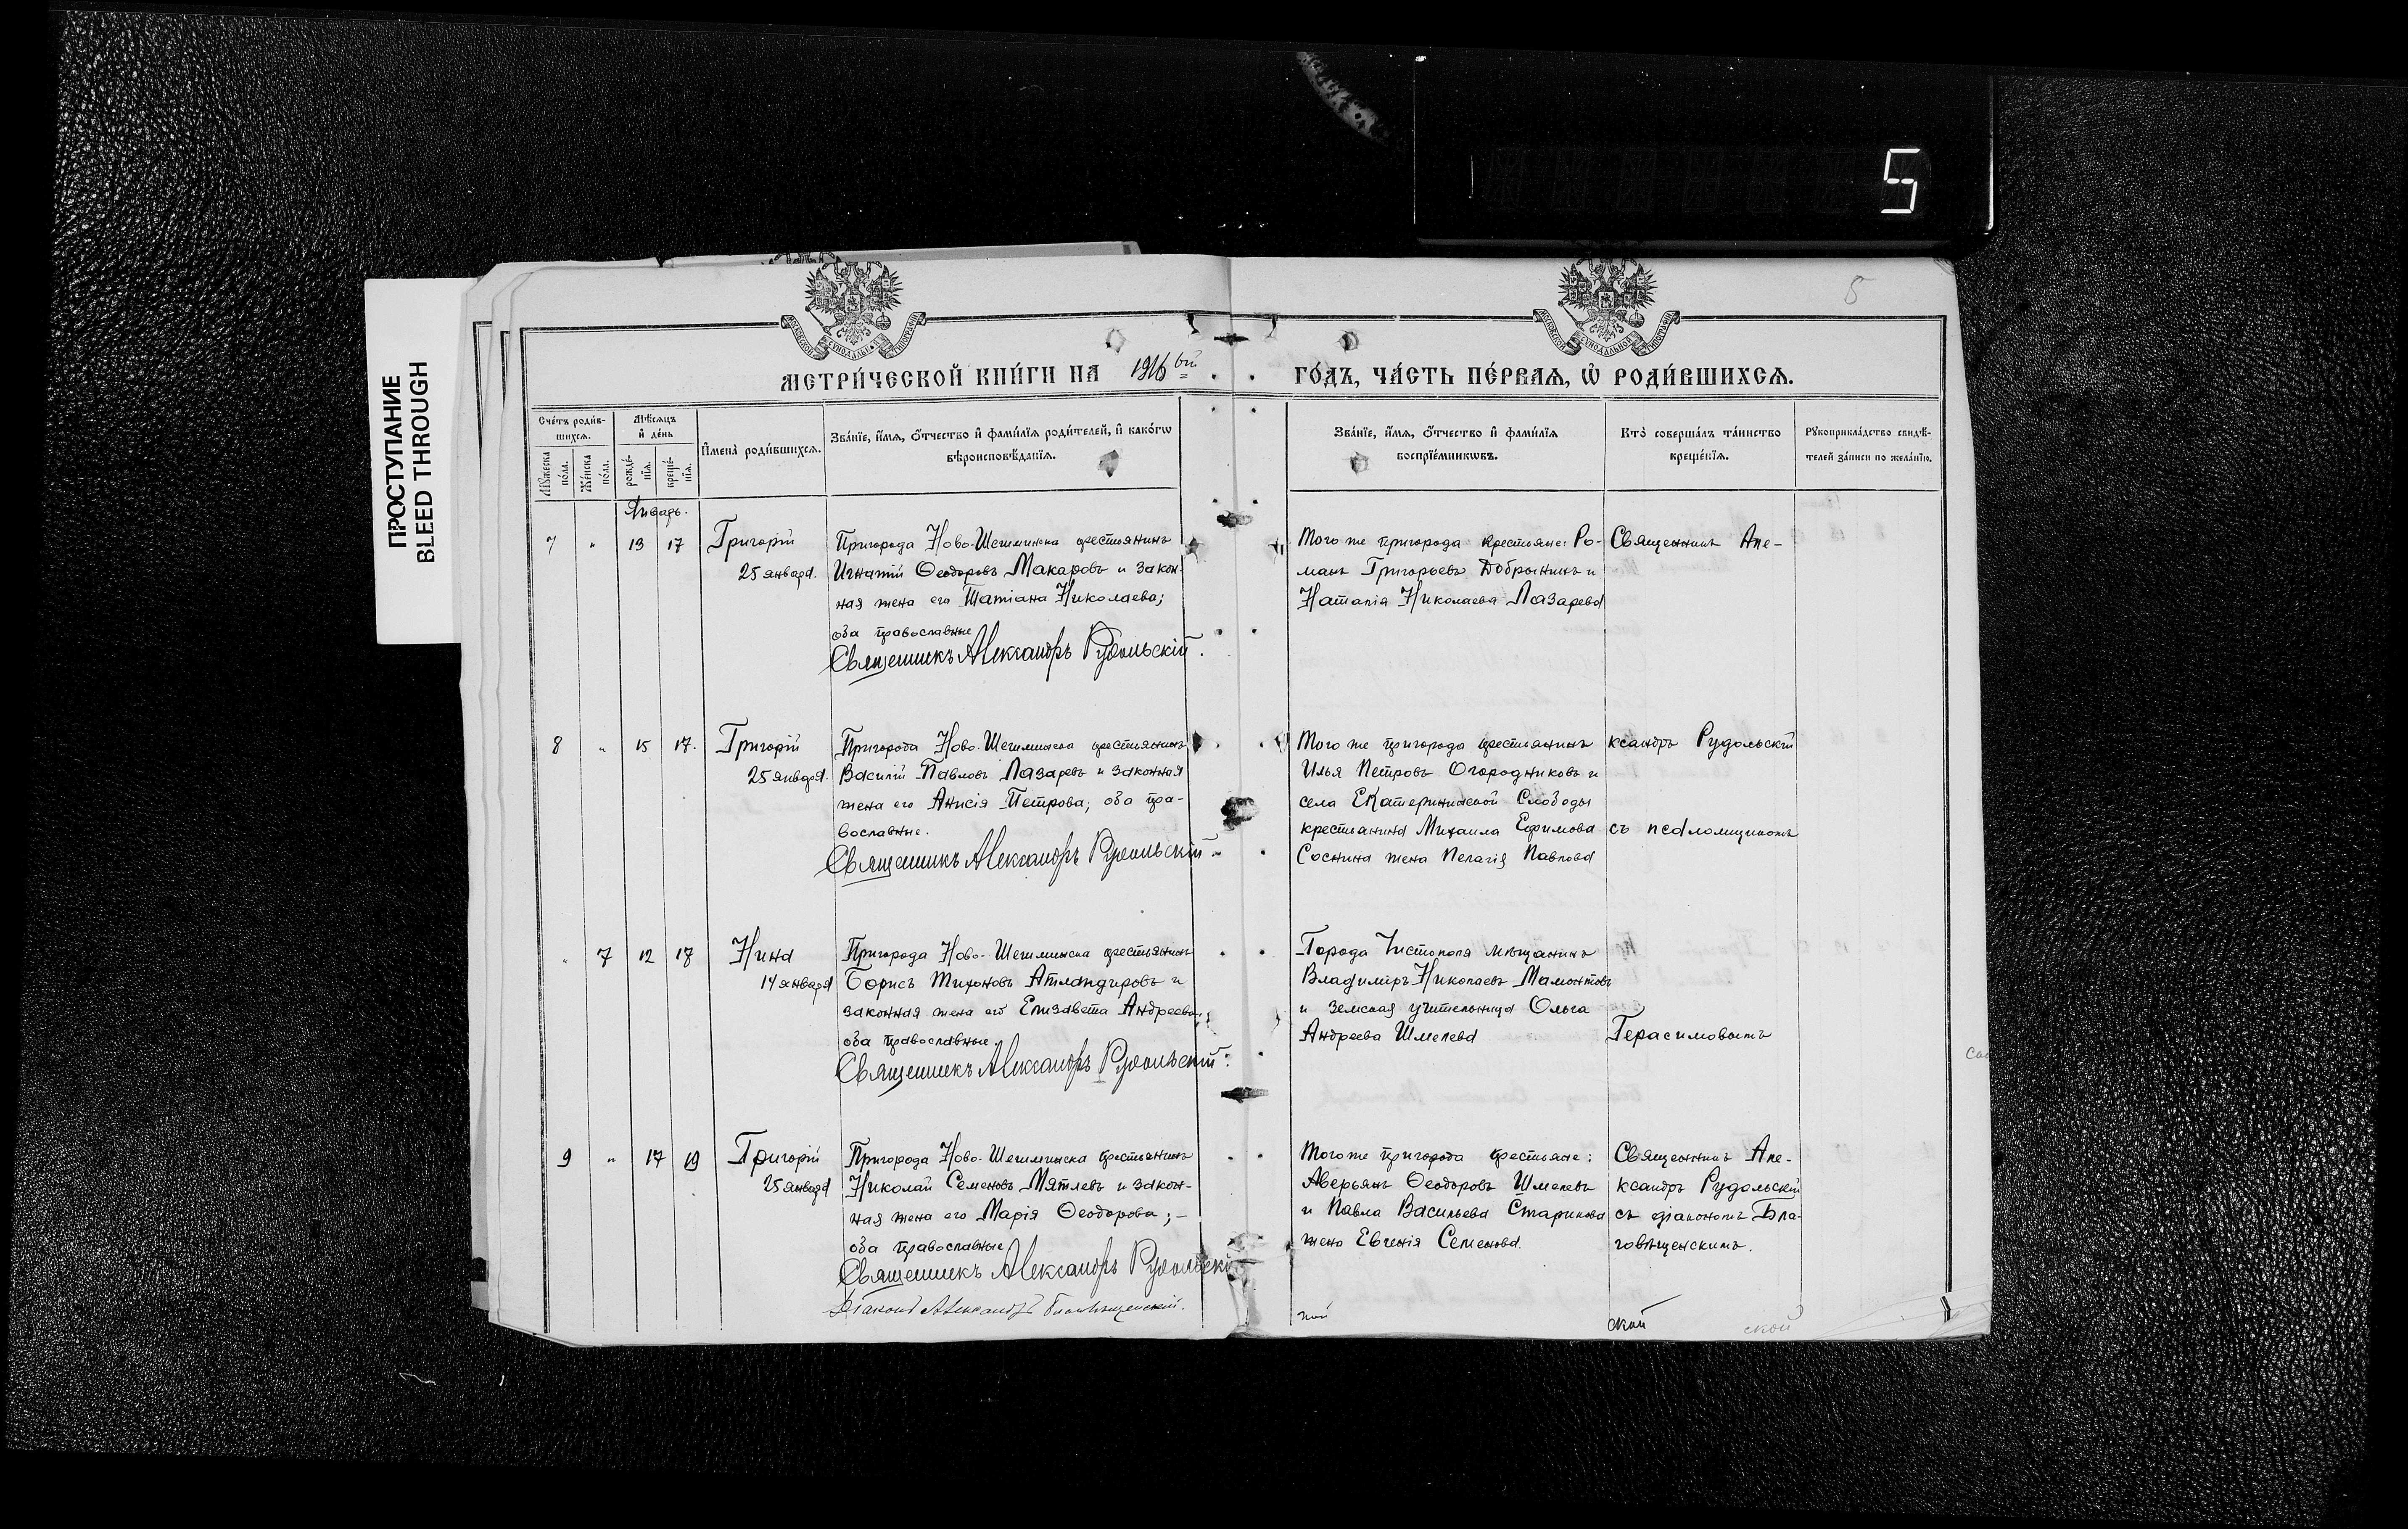 5
ПРОСТУПАНИЕ
BLEED THROUGH
5
МЕТРИ́ЧЕСКОЙ КНИ́ГИ НА 1916 ый
ГО́ДЪ, ЧА́СТЬ ПЕ́РВАЯ, Ѡ҆ РОДИ́ВШИХСЯ.
Сче́тъ роди́в-
шихся.
Мꙋ́жеска по́ла.
Же́нска по́ла.
Мѣ́сяцъ
и҆ де́нь
рожде́-
нїя.
креще́-
нїя.
И҆мена̀ роди́вшихся.
Зва́нїе, и҆́мя, ѻ҆́тчество и҆ фами́лїя роди́телей, и҆ како́гѡ
вѣроисповѣ́данїя.
Зва́нїе, и҆́мя, ѻ҆́тчество и҆ фами́лїя
воспрїе́мникѡвъ.
Кто̀ соверша́лъ та́инство
креще́нїя.
Рꙋкоприкла́дство свидѣ́-
телей за́писи по жела́нїю.
Январь.
7 " 13 17 Григорій
25 января.
Пригорода Ново-Шешминска крестьянинъ
Игнатій Ѳеодоровъ Макаровъ и закон-
ная жена его Татіана Николаева;
оба православные
Священникъ Александръ Рудольскій.
Того же пригорода крестьяне: Ро-
манъ Григорьевъ Добрынинъ и
Наталія Николаева Лазарева
Священникъ Але-
8 " 15 17. Григорій
25 января.
Пригорода Ново-Шешминска крестьянинъ
Василій Павловъ Лазаревъ и законная
жена его Анисія Петрова; оба пра-
вославные.
Священникъ Александръ Рудольскій.
Того же пригорода крестьянинъ
Илья Петровъ Огородниковъ и
села Екатерининской Слободы
крестьянина Михаила Ефимова
Соснина жена Пелагія Павлова
ксандръ Рудольскій
съ псаломщикомъ
" 7 12 18 Нина
14 января
Пригорода Ново-Шешминска крестьянинъ
Борисъ Тихоновъ Атландировъ и
законная жена его Елизавета Андреева;
оба православные.
Священникъ Александръ Рудольскій.
Города Чистополя мѣщанинъ
Владиміръ Николаевъ Мамонтовъ
и земская учительница Ольга
Андреева Шмелева
Герасимовымъ
9 " 17 19 Григорій
25 января
Пригорода Ново-Шешминска крестьянинъ
Николай Семеновъ Мятлевъ и закон-
ная жена его Марія Ѳеодорова;-
оба православные
Священникъ Александръ Рудольскій
Діаконъ Александръ Благовѣщенскій.
Того же пригорода крестьяне:
Аверьянъ Ѳеодоровъ Шмелевъ
и Павла Васильева Старикова
жена Евгенія Семенова.
Священникъ Але-
ксандръ Рудольскій
съ діакономъ Бла-
говѣщенскимъ.
ской
ской